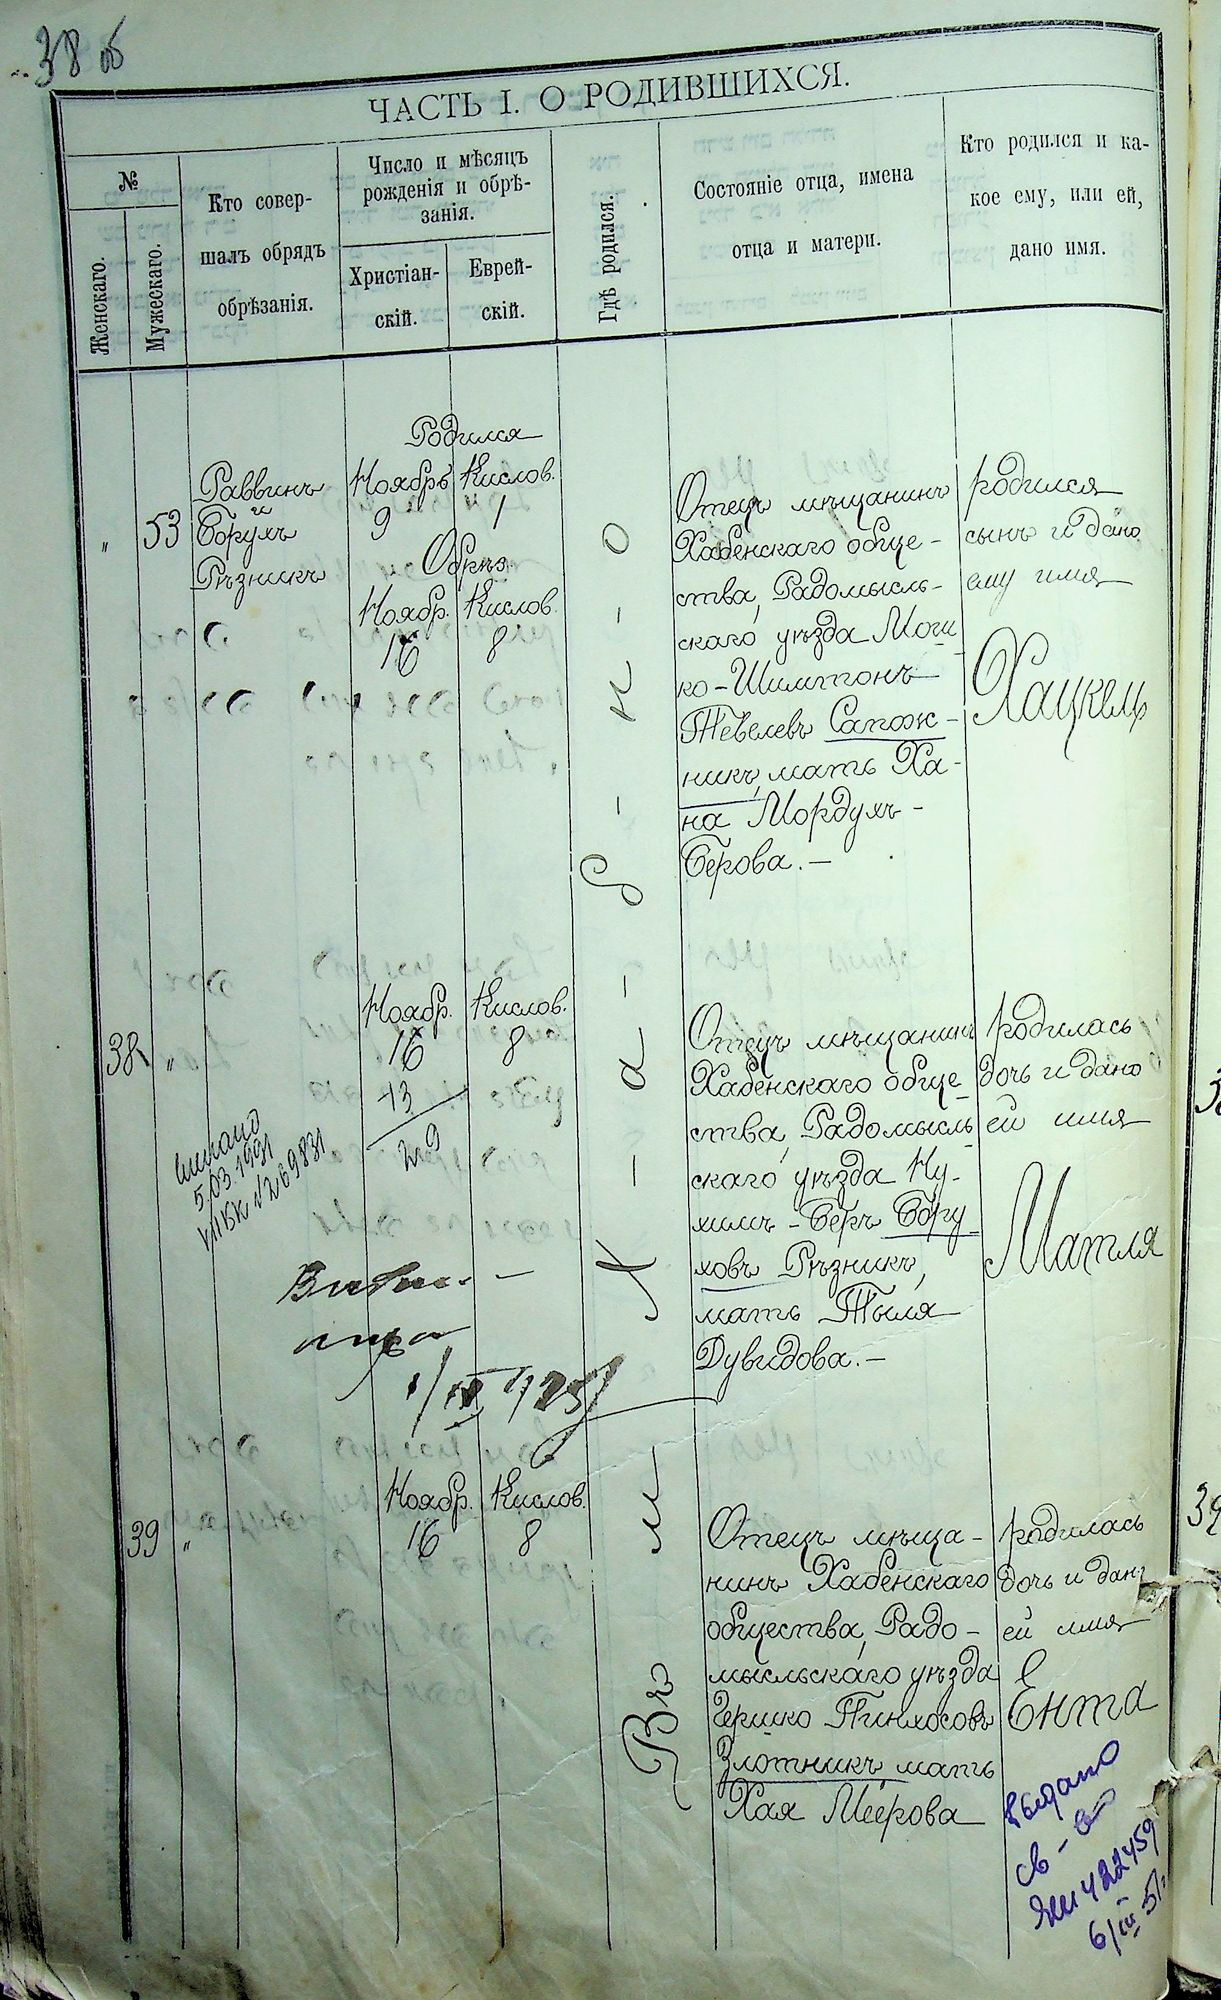 38 об
ЧАСТЬ I. О РОДИВШИХСЯ.
№
Женскаго.
Мужескаго.
Кто совер-
шалъ обрядъ
обрѣзанія.
Число и мѣсяцъ
рожденія и обрѣ-
занія.
Христіан-
скій.
Еврей-
скій.
Гдѣ родился.
Состояніе отца, имена
отца и матери.
Кто родился и ка-
кое ему, или ей,
дано имя.
Въ м. Хабно
„ 53
Раввинъ
и
Борухъ
Рѣзникъ
Родился
Ноябрь Кислов.
9 1
Обрѣз
Ноябр. Кислов.
16 8
Отецъ мѣщанинъ
Хабенскаго обще-
ства, Радомысль-
скаго уѣзда
ко-Шимшонъ
Тевелевъ Сапож-
никъ, мать Ха-
на Мордухъ-
Берова.-
родился
сынъ и дано
ему имя
Хацкель
38 „
Ноябр. Кислов.
16 8
13
29
5.03.1991
Отецъ мѣщанинъ
Хабенскаго обще-
ства, Радомысль
скаго уѣзда Ну-
химъ-Беръ Бору-
ховъ Рѣзникъ,
мать Тыля
Дувидова.-
родилась
дочь и дано
ей имя
Матля
39 „
Ноябр. Кислов.
16 8
Отецъ мѣща-
нинъ Хабенскаго
общества, Радо-
мысльскаго уѣзда
Гершко Пинхосовъ
Злотникъ мать
Хая Меерова
родилась
дочь и дано
ей имя
Ента
выдано
св-во
422459